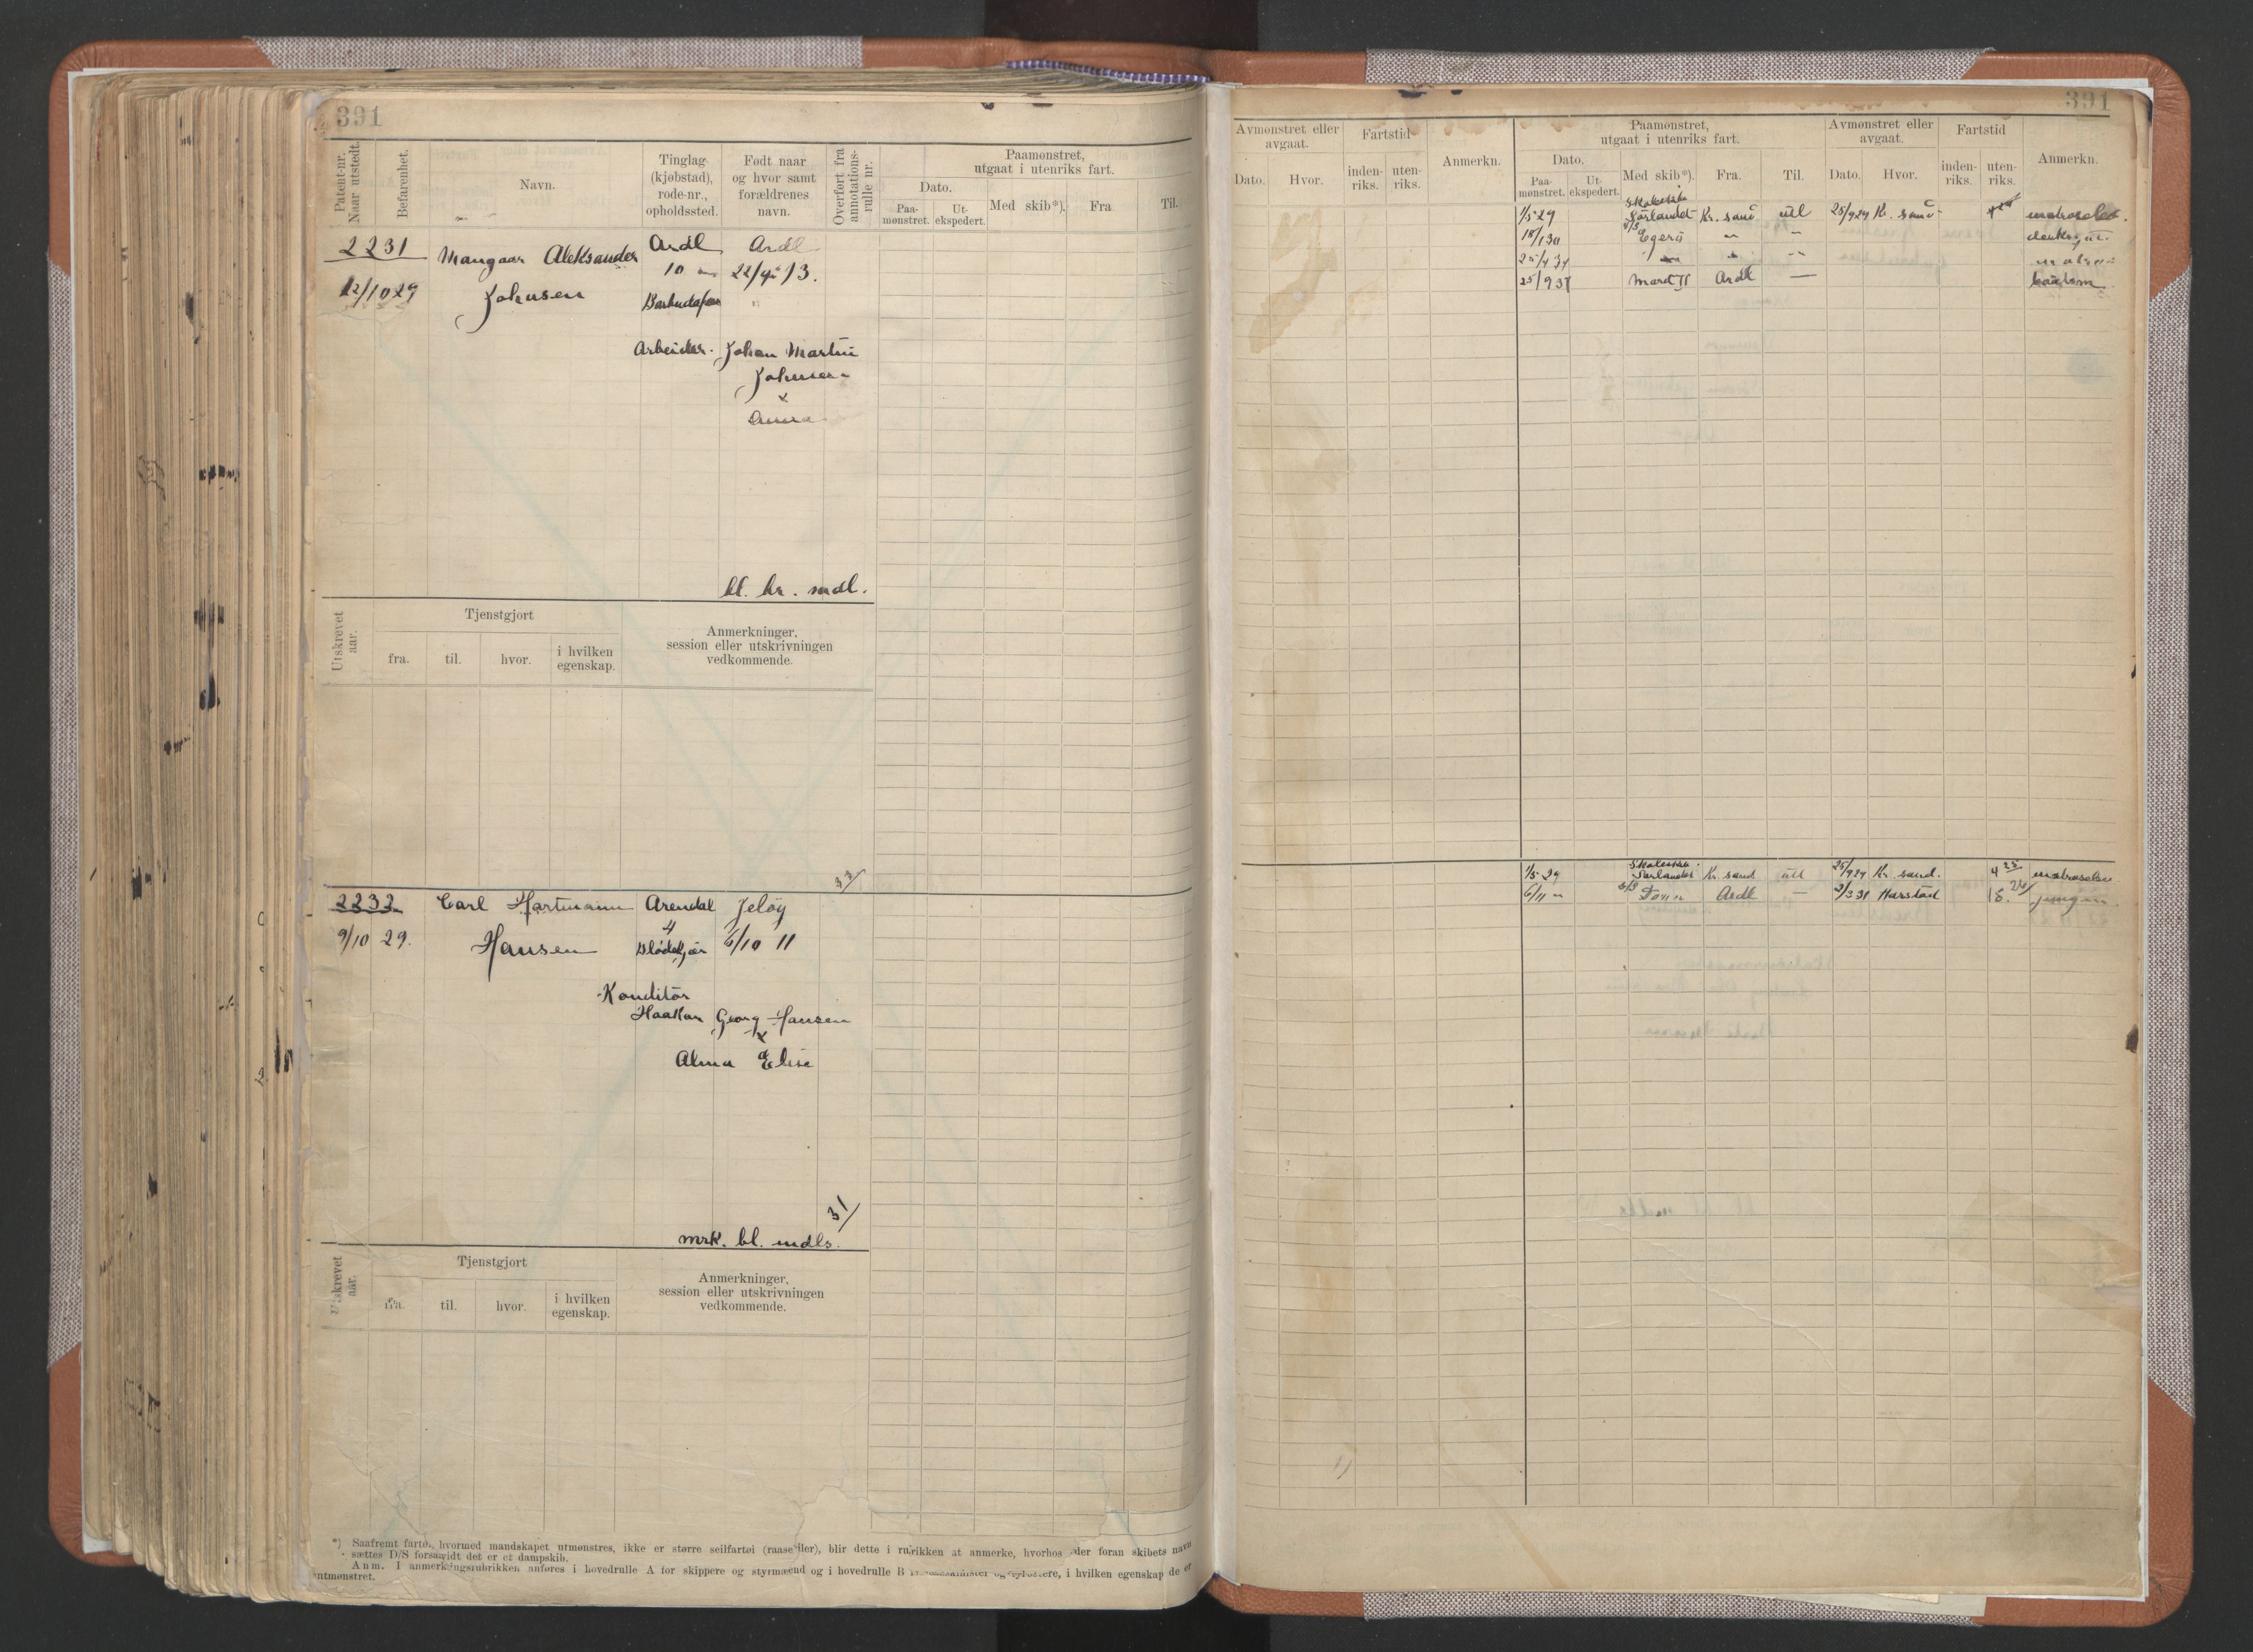 391
Patent-nr. Naar utstedt.
Befarenhet.
Navn.
Tinglag (kjøbstad), rode-nr., opholdssted.
Født naar og hvor samt forældrenes navn.
Overført fra annotations-rulle nr.
Paamønstret, utgaat i utenriks fart.
Dato.
Paa-mønstret.
Ut-ekspedert.
Med skib*).
Fra
Til.
2231 Aleksander Ardl Ardl
12/10 29 Johnsen 10 22/4 13.
Arbeider. Johan Martin
Johnsen
x
Anna
bl. hr. mdl.
Utskrevet aar.
Tjenstgjort
fra.
til.
hvor.
i hvilken egenskap.
Anmerkninger, session eller utskrivningen vedkommende.
33/
2232 Carl Hartmann Arendal Jeløy
9/10 29. Hansen 4 6/10 11
Blødekjær
Konditor
Haakon Georg Hansen
x
Alma Elise
31/
mrk. bl. mdls.
Utskrevet aar.
Tjenstgjort
fra.
til.
hvor.
i hvilken egenskap.
Anmerkninger, session eller utskrivningen vedkommende.
*) Saafremt fartøi, hvormed mandskapet utmønstres, ikke er større seilfartøi (raaseiler), blir dette i rubrikken at anmerke, hvorhos der foran skibets navn
sættes D/S forsaavidt det er et dampskib.
Anm. I anmerkningsrubrikken anføres i hovedrulle A for skippere og styrmænd og i hovedrulle B i hvilken egenskap de er
utmønstret.
391
Avmønstret eller avgaat.
Fartstid
Dato.
Hvor.
inden-riks.
uten-riks.
Anmerkn.
Paamønstret, utgaat i utenriks fart.
Dato.
Paa-mønstret.
Ut-ekspedert.
Med skib*).
Fra.
Til.
Avmønstret eller avgaat.
Dato.
Hvor.
Fartstid
inden-riks.
uten-riks.
Anmerkn.
Skoleskib
1/5 29 Sørlandet Kr. sand utl 25/9 29 Kr. sand
18/1 30 Egerö " "
25/4 34 " " "
25/9 37 Ardl —
Skoleskib
1/5 29 Sørlandet Kr. sand utl 25/9 29 Kr. sand. 4 25
6/11 " Ardl — 2/3 31 Harstad